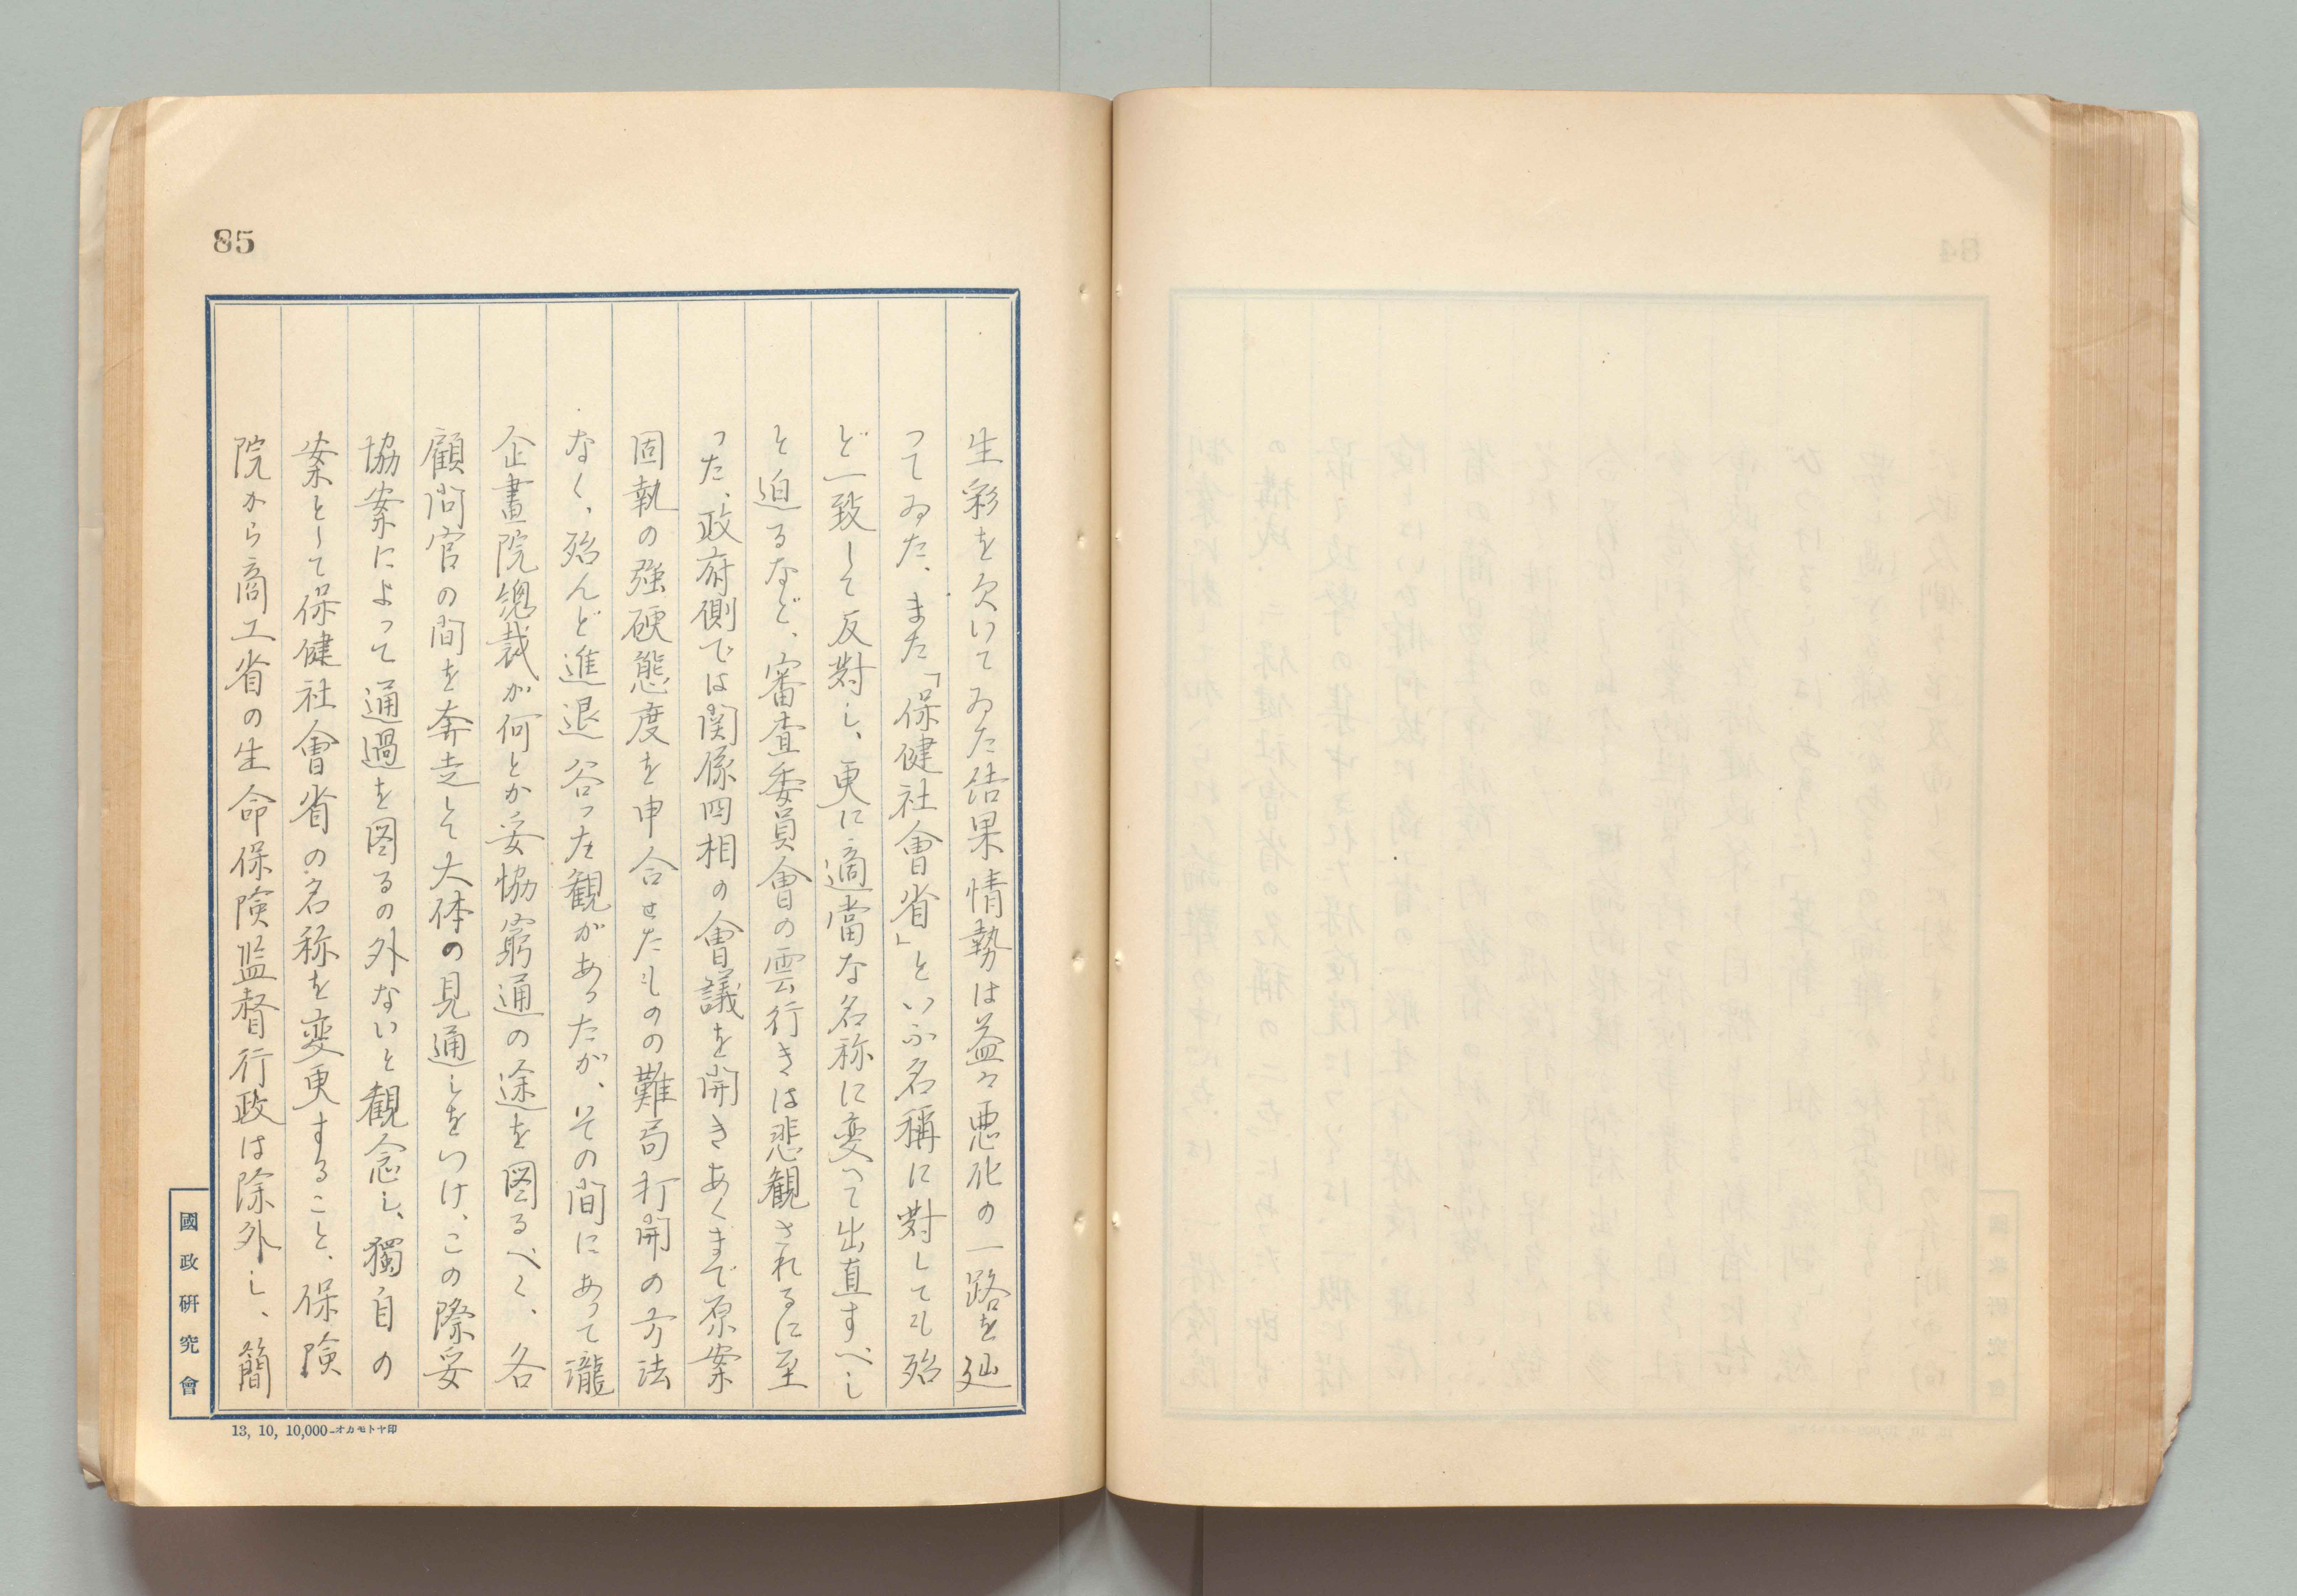 85
生彩を欠いてゐた結果情勢は益々悪化の一路を辿
つてゐた、また「保健社會省」といふ名稱に對しても殆
ど一致して反對し、更に適當な名称に変へて出直すべし
と迫るなど、審査委員會の雲行きは悲観されるに至
つた、政府側では関係四相の會議を開きあくまで原案
固執の強硬態度を申合せたものの難局打開の方法
なく、殆んど進退谷つた観があつたが、その間にあつて瀧
企畫院總裁が何とか妥協窮通の途を図るべく、各
顧問官の間を奔走して大体の見通しをつけ、この際妥
協案によつて通過を図るの外ないと観念し、獨自の
案として保健社會省の名称を変更すること、保険
院から商工省の生命保険監督行政は除外し、簡
國政研究會
13, 10, 10,000-オカモトヤ印